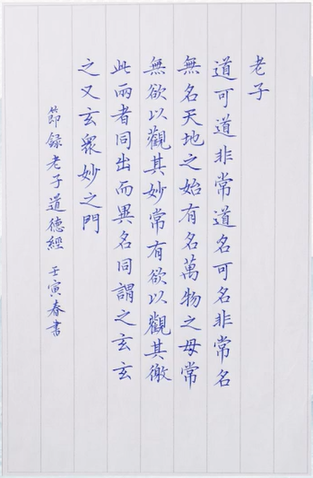 老子
道可道非常道名可名非常名
無名天地之始有名萬物之母常
無欲以觀其妙常有欲以觀其徼
此兩者同出而異名同謂之玄玄
之又玄衆妙之門
節録老子道德經 壬寅春書